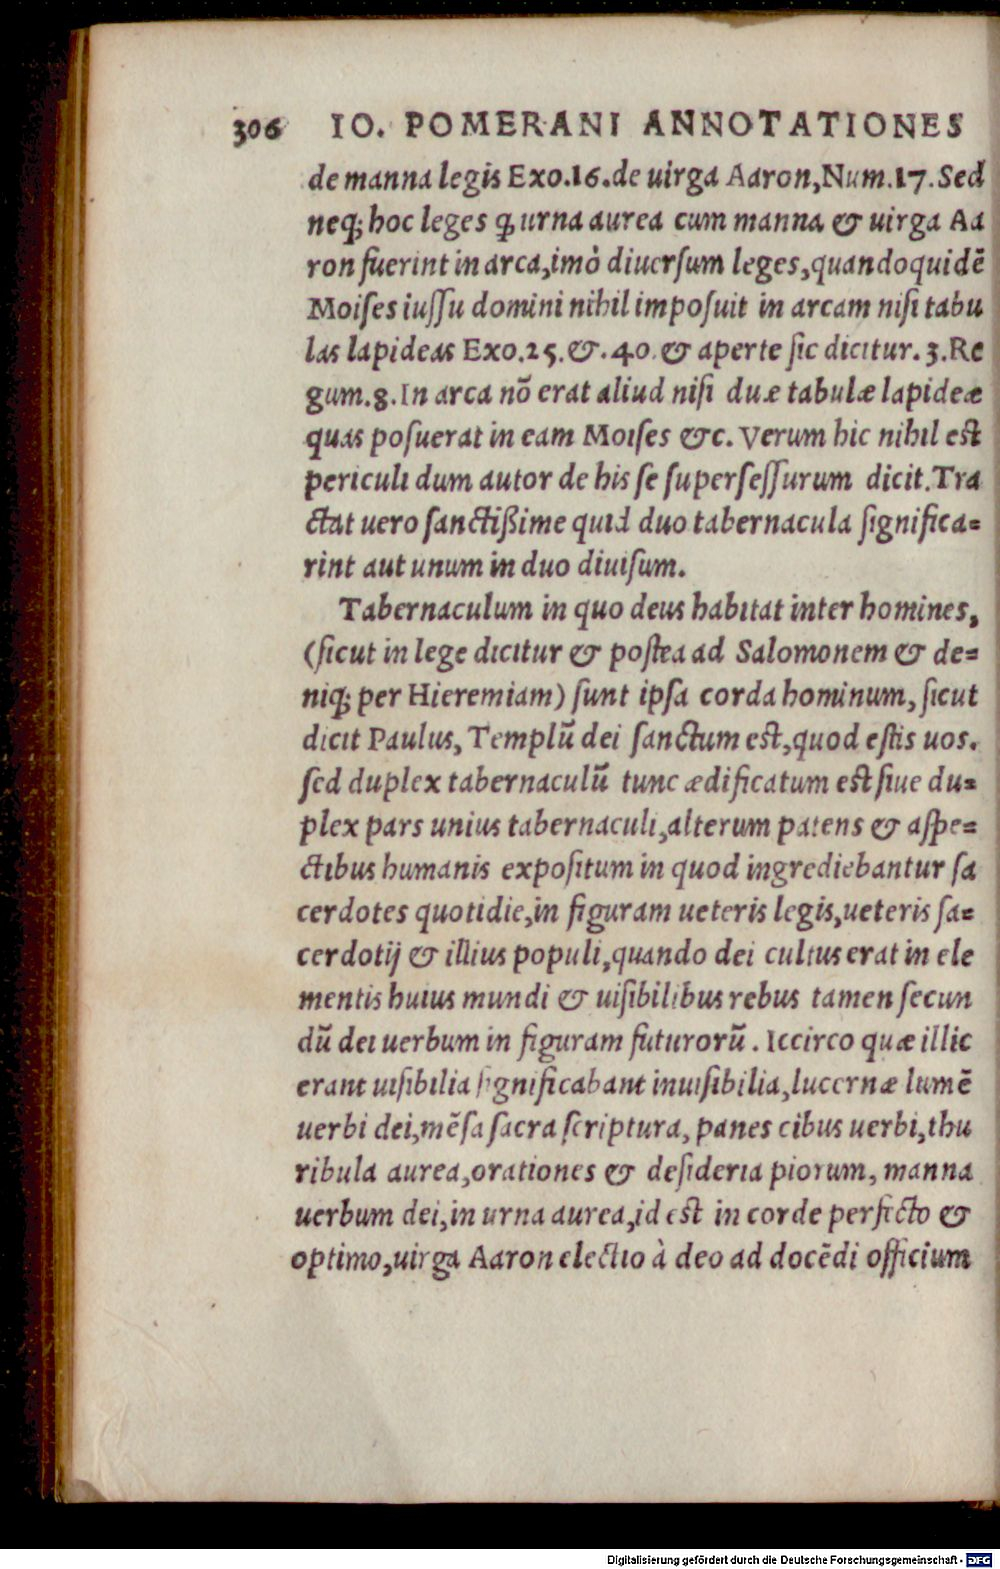 306 IO. POMERANI ANNOTATIONES
de manna legis Exo.16.de uirga Aaron,Num.17.Sed
neq; hoc leges ꝙ urna aurea cum manna & uirga Aa
ron fuerint in arca,imò diuersum leges,quandoquidē
Moises iussu domini nihil imposuit in arcam nisi tabu
las lapideas Exo.25.&.40.& aperte sic dicitur.3.Re
gum.8.In arca nō erat aliud nisi duæ tabulæ lapideæ
quas posuerat in eam Moises &c. Verum hic nihil est
periculi dum autor de his se supersessurum dicit.Tra
ctat uero sanctißime quid duo tabernacula significa=
rint aut unum in duo diuisum.
Tabernaculum in quo deus habitat inter homines,
(sicut in lege dicitur & postea ad Salomonem & de=
niq; per Hieremiam) sunt ipsa corda hominum, sicut
dicit Paulus, Templū dei sanctum est,quod estis uos.
sed duplex tabernaculū tunc ædificatum est siue du=
plex pars unius tabernaculi,alterum patens & aspe=
ctibus humanis expositum in quod ingrediebantur sa
cerdotes quotidie,in figuram ueteris legis,ueteris sa=
cerdotij & illius populi,quando dei cultus erat in ele
mentis huius mundi & uisibilibus rebus tamen secun
dū dei uerbum in figuram futurorū. Iccirco quæ illic
erant uisibilia significabant inuisibilia,lucernæ lumē
uerbi dei,mēsa sacra scriptura, panes cibus uerbi,thu
ribula aurea,orationes & desideria piorum, manna
uerbum dei,in urna aurea,id est in corde perfecto &
optimo,uirga Aaron electio à deo ad docēdi officium
Digitalisierung gefördert durch die Deutsche Forschungsgemeinschaft - DFG